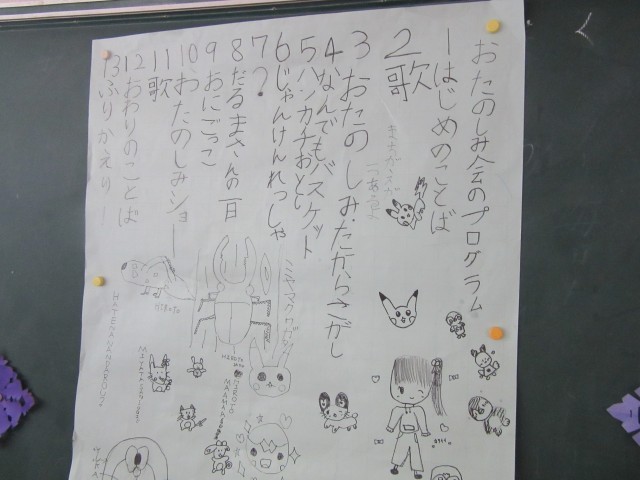 おたのしみ会のプログラム
1はじめのことば
2歌
3おたのしみたからさがし
4なんでもバスケット
5ハンカチおとし
6じゃんけんれっしゃ
7?
8だるまさんの一日
9おにごっこ
10おたのしみショー
11歌
12おわりのことば
13ふりかえり
ミヤマクワガタ
HIROTO